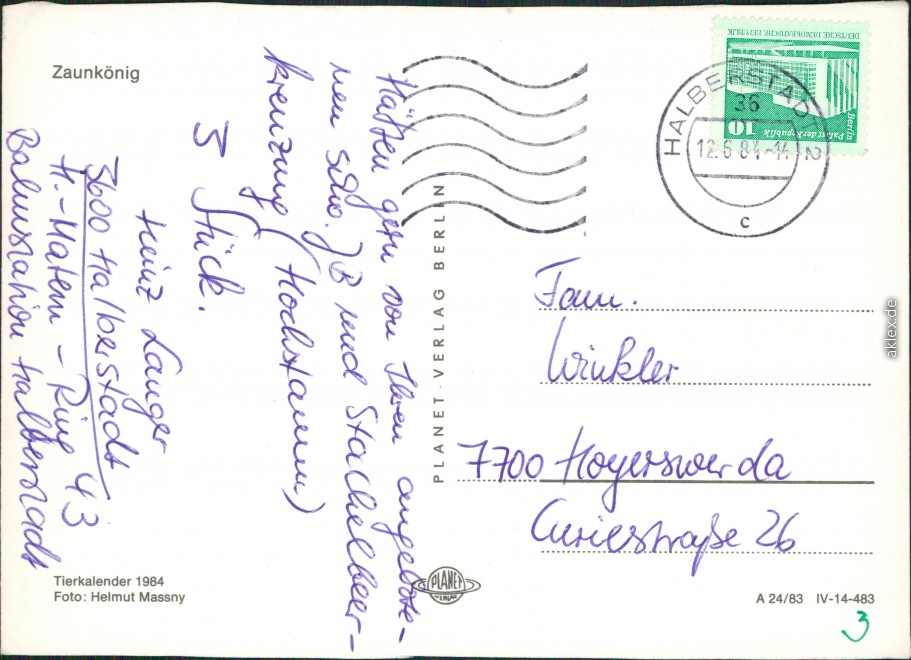 Zaunkönig
Hätten gern von Ihren angebote-
nen schw. JB und Stachelbeer-
kreuzung (Hochstamm)
5 Stück.
Heinz Langer
3600 Halberstadt
H.-Matern-Ring 43
Bahnstation Halberstadt
Tierkalender 1984
Foto: Helmut Massny
PLANET-VERLAG BERLIN
PLANET
VERLAG
DEUTSCHE DEMOKRATISCHE REPUBLIK
Berlin
Palast der Republik
10
HALBERSTADT 2
36
12.6.84-14
c
Fam.
Winkler
7700 Hoyerswerda
Curiestraße 26
A 24/83 IV-14-483
3
aklex.de